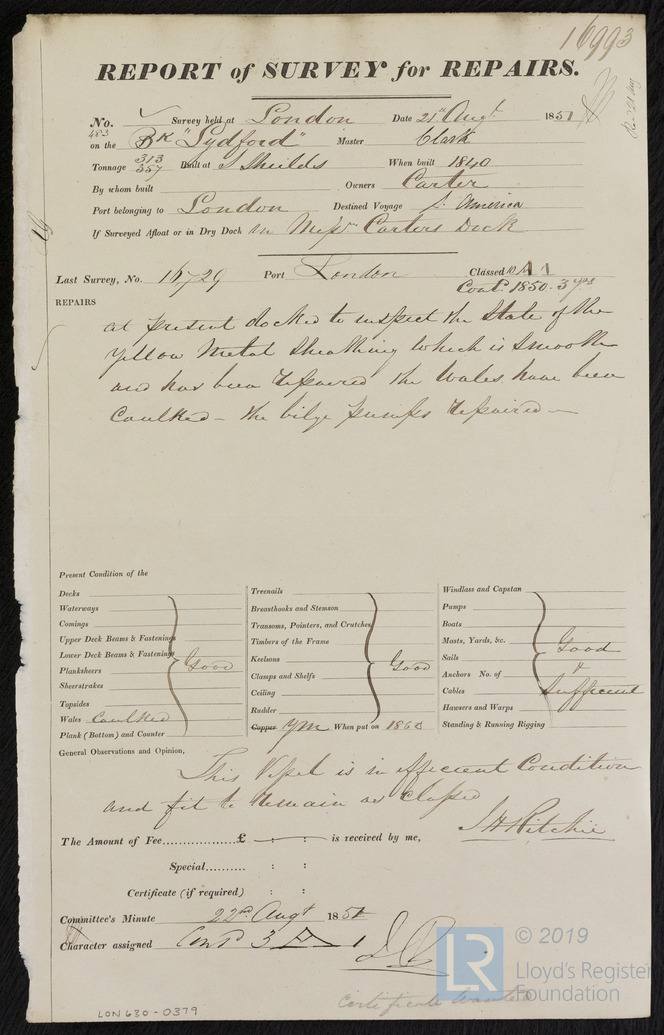 16993
REPORT of SURVEY for REPAIRS.
No. Survey held at London Date 21st Augt 1851
483
on the Bk "Lydford" Master Clark
Tonnage 313 357 Built at S Shields When built 1840
By whom built Owners Carter
Port belonging to London Destined Voyage S. America
If Surveyed Afloat or in Dry Dock in Messrs Carters Dock
Last Survey, No. 16,729 Port London Classed 10 A 1
Cont. 1850. 3 yrs
REPAIRS
at present docked to inspect the State of the
Yellow Metal Sheathing which is Smooth
and has been repaired the Wales have been
Caulked – the bilge pumps repaired –
Present Condition of the
Decks
Waterways
Comings
Upper Deck Beams & Fastenings
Lower Deck Beams & Fastenings
Planksheers
Sheerstrakes
Topsides
Wales Caulked
Plank (Bottom) and Counter
Good
Treenails
Breasthooks and Stemson
Transoms, Pointers, and Crutches
Timbers of the Frame
Keelsons
Clamps and Shelfs
Ceiling
Rudder
Copper YM When put on 1850
Good
Windlass and Capstan
Pumps
Boats
Masts, Yards, &c.
Sails
Anchors No. of
Cables
Hawsers and Warps
Standing & Running Rigging
Good
&
Sufficient
General Observations and Opinion,
This Vessel is in efficient Condition
and fit to remain as Classed
J H Ritchie
The Amount of Fee..................£ : : is received by me,
Special.......... : :
Certificate (if required) : :
Committee's Minute 22nd Augt 1851
Character assigned Contd 3 A 1
LON 630-0379
Certificate Wanted
LR
© 2019
Lloyd's Register
Foundation